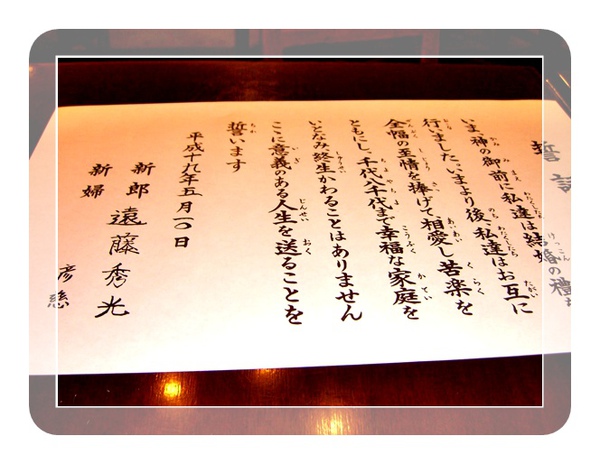 誓詞
いま、神の御前に私達は結婚の禮を
行いました、いまより後、私達はお互に
全幅の至情を捧げて相愛し苦楽を
ともにし、千代八千代まで幸福な家庭を
いとなみ終生かわることはありません
ここに意義のある人生を送ることを
誓います
平成十九年五月一〇日
新郎 遠藤秀光
新婦